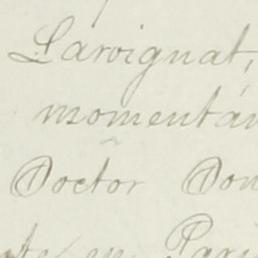 Larvignat,
momentán
Doctor Don
ate en Pari